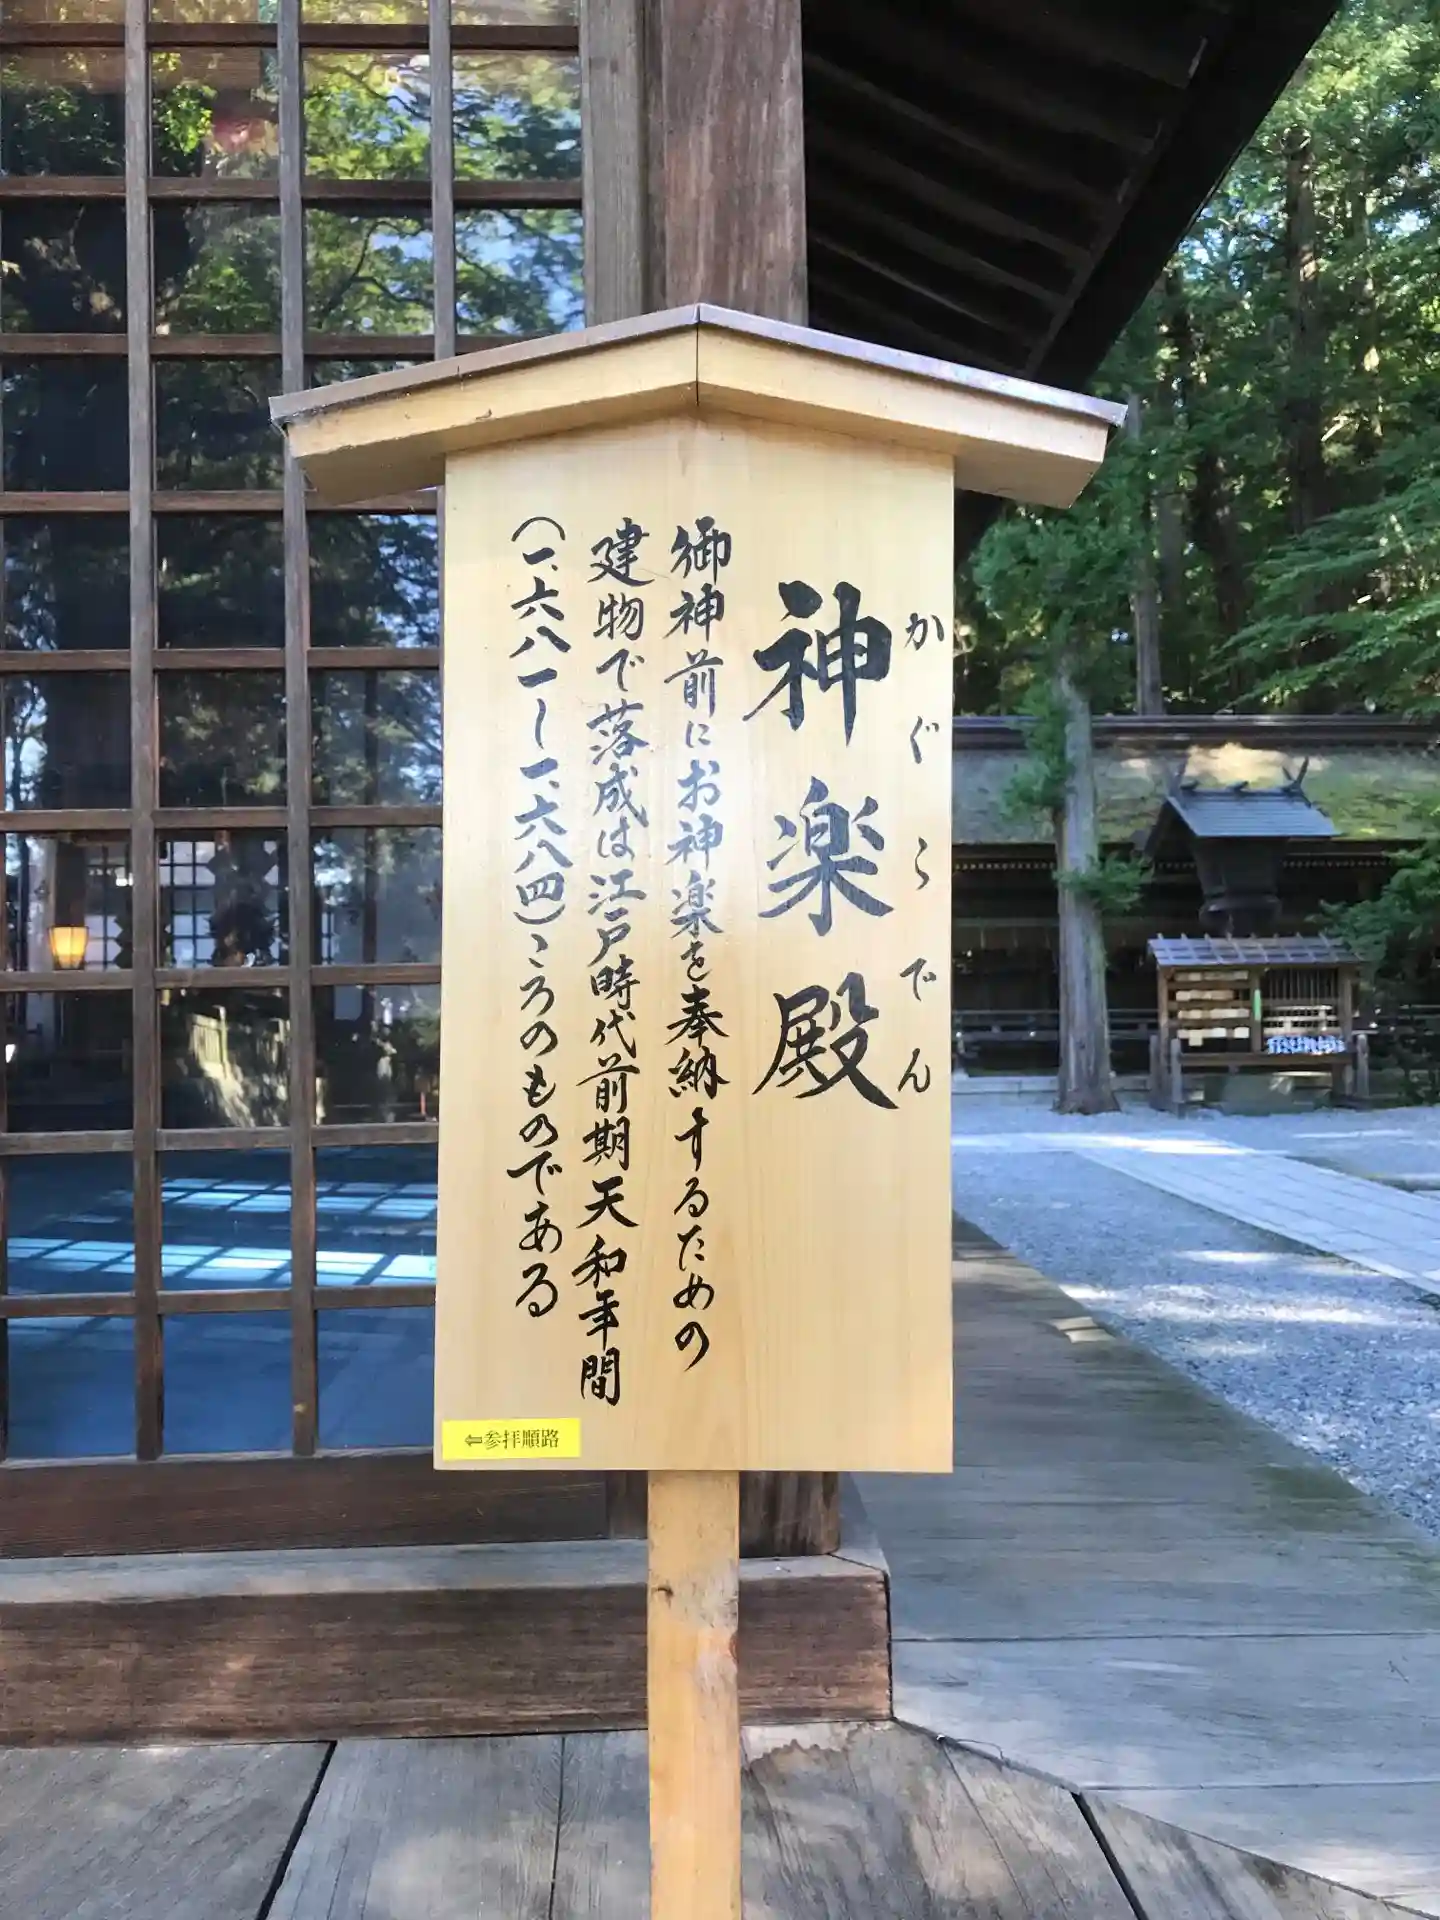 かぐらでん
神楽殿
御神前にお神楽を奉納するための
建物で落成は江戸時代前期天和年間
(一、六八一〜一、六八四)ころのものである
⇦参拝順路